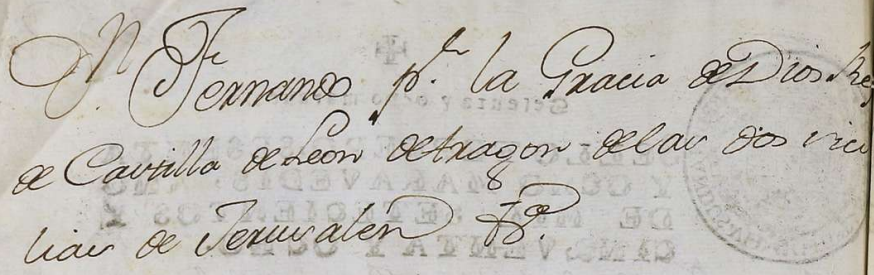 Dⁿ Fernando pʳ la Gracia de Dios Rey
de Castilla de Leon de Aragon de las dos sici
lias de Jerusalen &ª